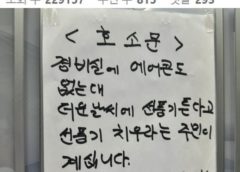 조회 수 229157 추천 수 815 댓글 293
< 호 소 문 >
경비실에 에어콘도
없는데
더운날씨에 선풍기튼다고
선풍기 치우라는 주민이
계십니다.